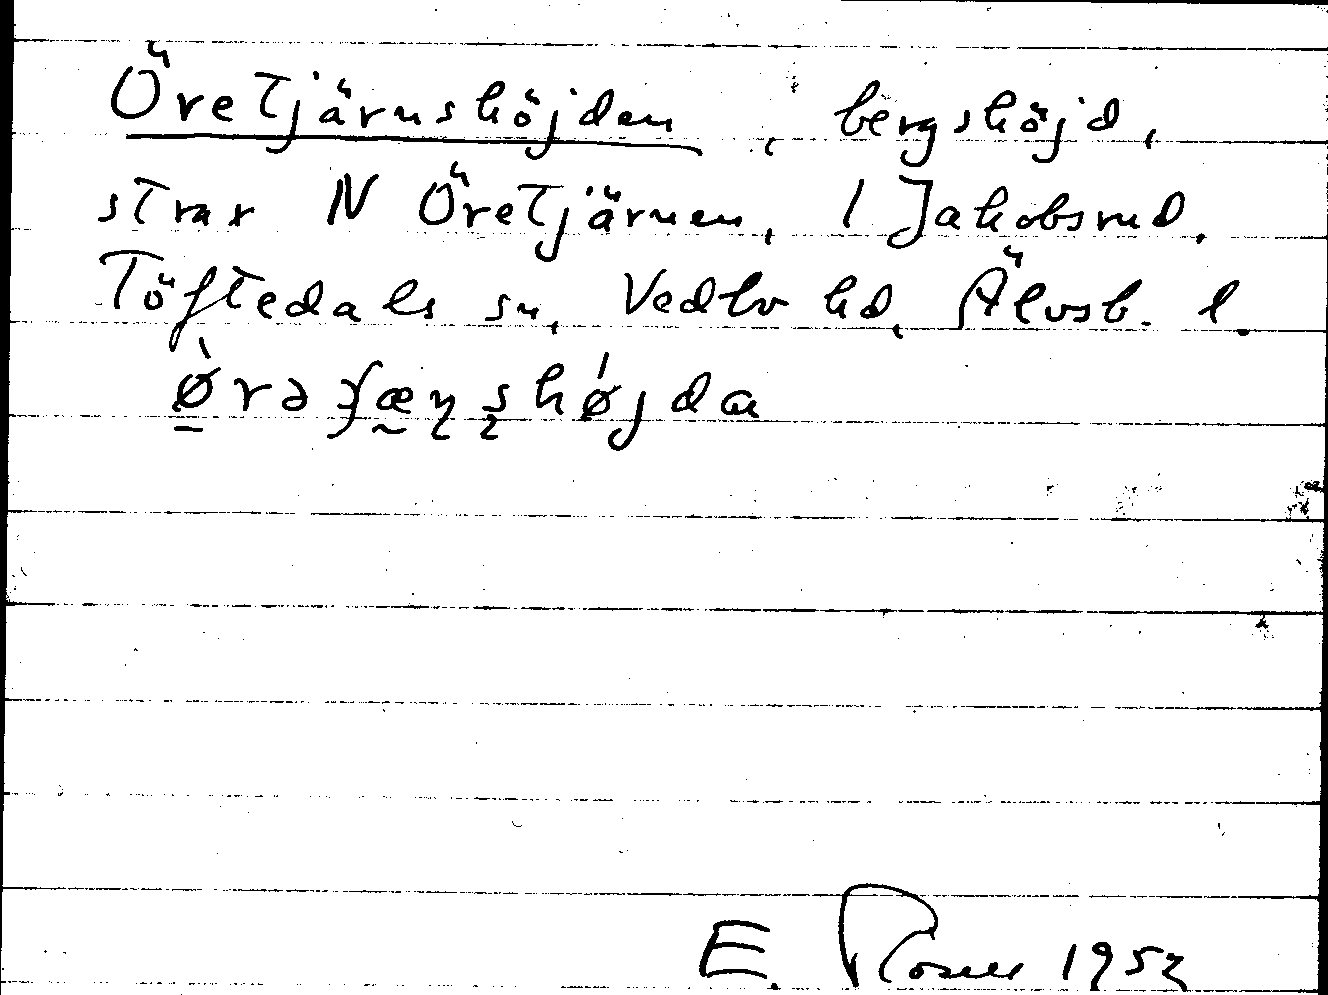 Öretjärnshöjden, bergshöjd,
strax N Öretjärnen, i Jakobsrud,
Töftedals sn, Vedbo hd, Älvsb. l.
E. 1952